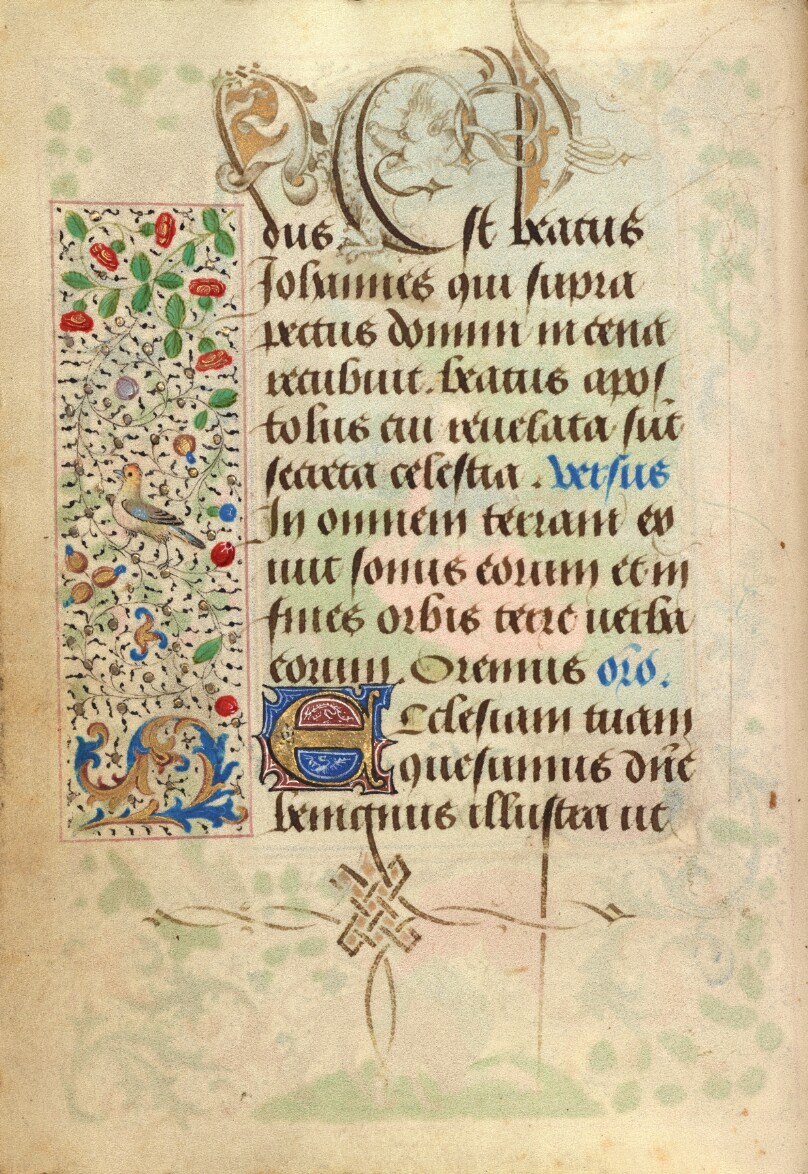 dus Est beatus
Iohannes qui supra
pectus domini in cena
recubuit. beatus apos
tolus cui reuelata sūt
secreta celestia. versus
In omnem terram ex
iuit sonus eorum et in
fines orbis terre uerba
eorum. Oremus orō.
Ecclesiam tuam
quesumus dn̄e
benignus illustra ut